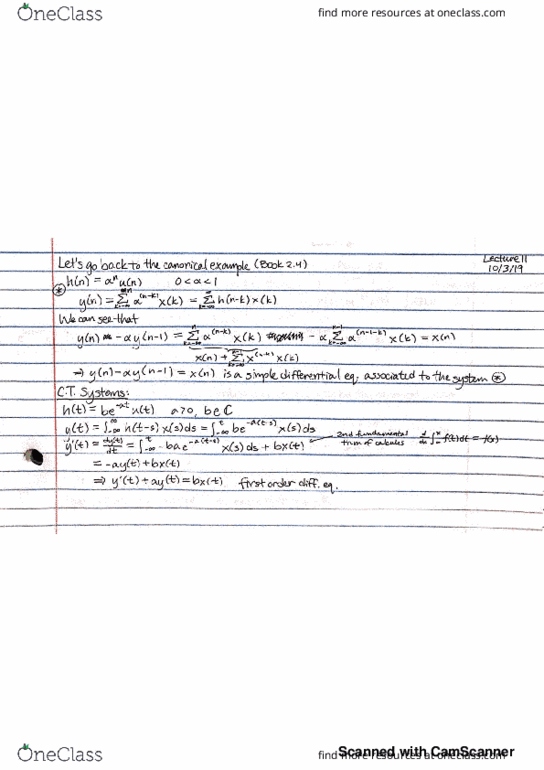 OneClass
find more resources at oneclass.com
Lecture 11
10/3/19
Let's go back to the canonical example (Book 2.4)
h(n) = α^n u(n) 0 < α < 1
y(n) = Σ_{k=-∞}^{n} α^(n-k) x(k) = Σ_{k=-∞}^{∞} h(n-k) x(k)
We can see that
y(n) - αy(n-1) = Σ_{k=-∞}^{n} α^(n-k) x(k) - α Σ_{k=-∞}^{n-1} α^(n-1-k) x(k) = x(n)
x(n) + Σ_{k=-∞}^{n-1} α^(n-k) x(k)
⇒ y(n) - αy(n-1) = x(n) is a simple differential eq. associated to the system ⊛
C.T. Systems:
h(t) = be^-at u(t) a>0, b∈ℂ
y(t) = ∫_{-∞}^{∞} h(t-s) x(s)ds = ∫_{-∞}^{t} be^-a(t-s) x(s)ds
y'(t) = dy(t)/dt = ∫_{-∞}^{t} -bae^-a(t-s) x(s)ds + bx(t)
2nd fundamental thm of calculus d/dx ∫_{-∞}^{x} f(t)dt = f(x)
= -ay(t) + bx(t)
⇒ y'(t) + ay(t) = bx(t) first order diff. eq.
OneClass
find more resources at oneclass.com
Scanned with CamScanner